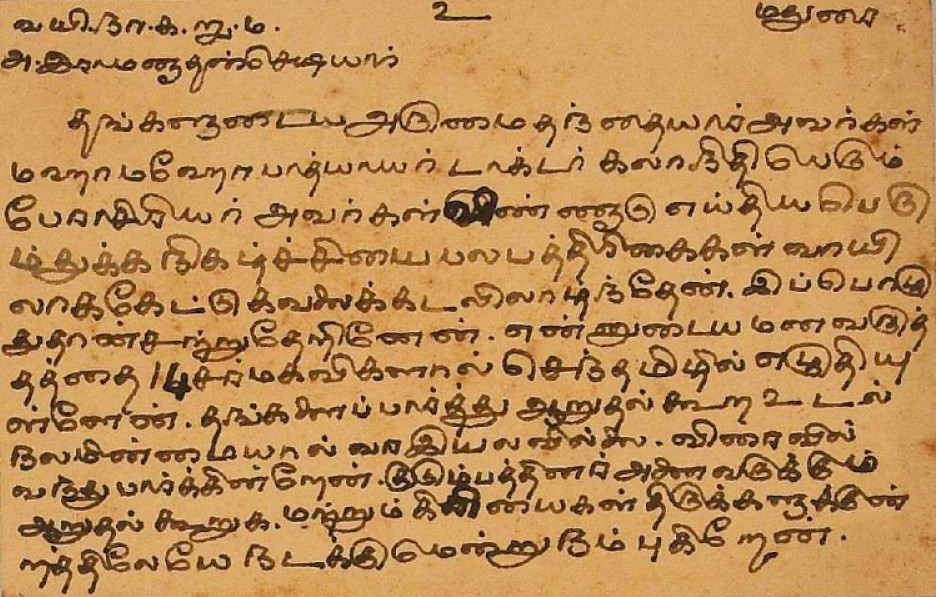 வயி.நா.க.று.ம. உ மதுரை
அ.இராமனாதன்செட்டியார்
தங்களுடைய அருமைதந்தையார் அவர்கள்
மஹாமஹோபாத்யாயர் டாக்டர் கலாநிதி யெனும்
பேராசிரியர் அவர்கள் விண்ணாடு எய்திய பெரு
ந்துக்க நிகழ்ச்சியை பலபத்திரிகைகள் வாயி
லாகக்கேட்டு கவலைக்கடலிலாழ்ந்தேன். இப்பொழு
துதான்சற்றுதேறினேன். என்னுடைய மனவருத்
தத்தை 14சரமகவிகளால் செந்தமிழில் எழுதியு
ள்ளேன். தங்களைப்பார்த்து ஆறுதல் கூற உடல்
நலமின்மையால் வர இயலவில்லை. விரைவில்
வந்து பார்க்கின்றேன். குடும்பத்தினர் அனைவருக்கும்
ஆறுதல் கூறுக. மற்றும் கிரியைகள் திருக்களக்குன்
றத்திலேயே நடக்குமென்று நம்புகிறேன்.